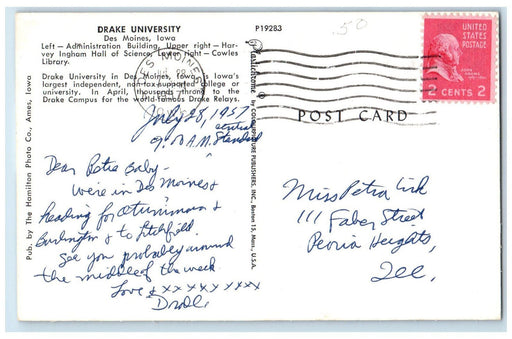 DRAKE UNIVERSITY
Des Moines, Iowa
Left — Administration Building, Upper right — Har-
vey Ingham Hall of Science, Lower right — Cowles
Library.
Drake University in Des Moines, Iowa is Iowa's
largest independent, non-tax-supported college or
university. In April, thousands throng to the
Drake Campus for the world-famous Drake Relays.
P19283
.50
DES MOINES
UNITED
STATES
POSTAGE
2 CENTS 2
POST CARD
Pub. by The Hamilton Photo Co., Ames, Iowa
COLOURPICTURE PUBLISHERS, INC., Boston 15, Mass., U.S.A.
July 28, 1957
9:00 A.M. Central Standard
Dear Petra Baby -
We're in Des Moines &
heading for Ottumwa &
Burlington & to Litchfield.
See you probably around
the middle of the week.
Love & xxxxxxxxx
Miss Petra
111 Faber Street
Peoria Heights,
Ill.